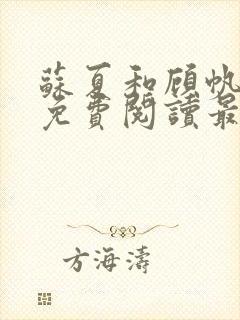 蘇夏和顾帆
免費閱讀最
方海濤